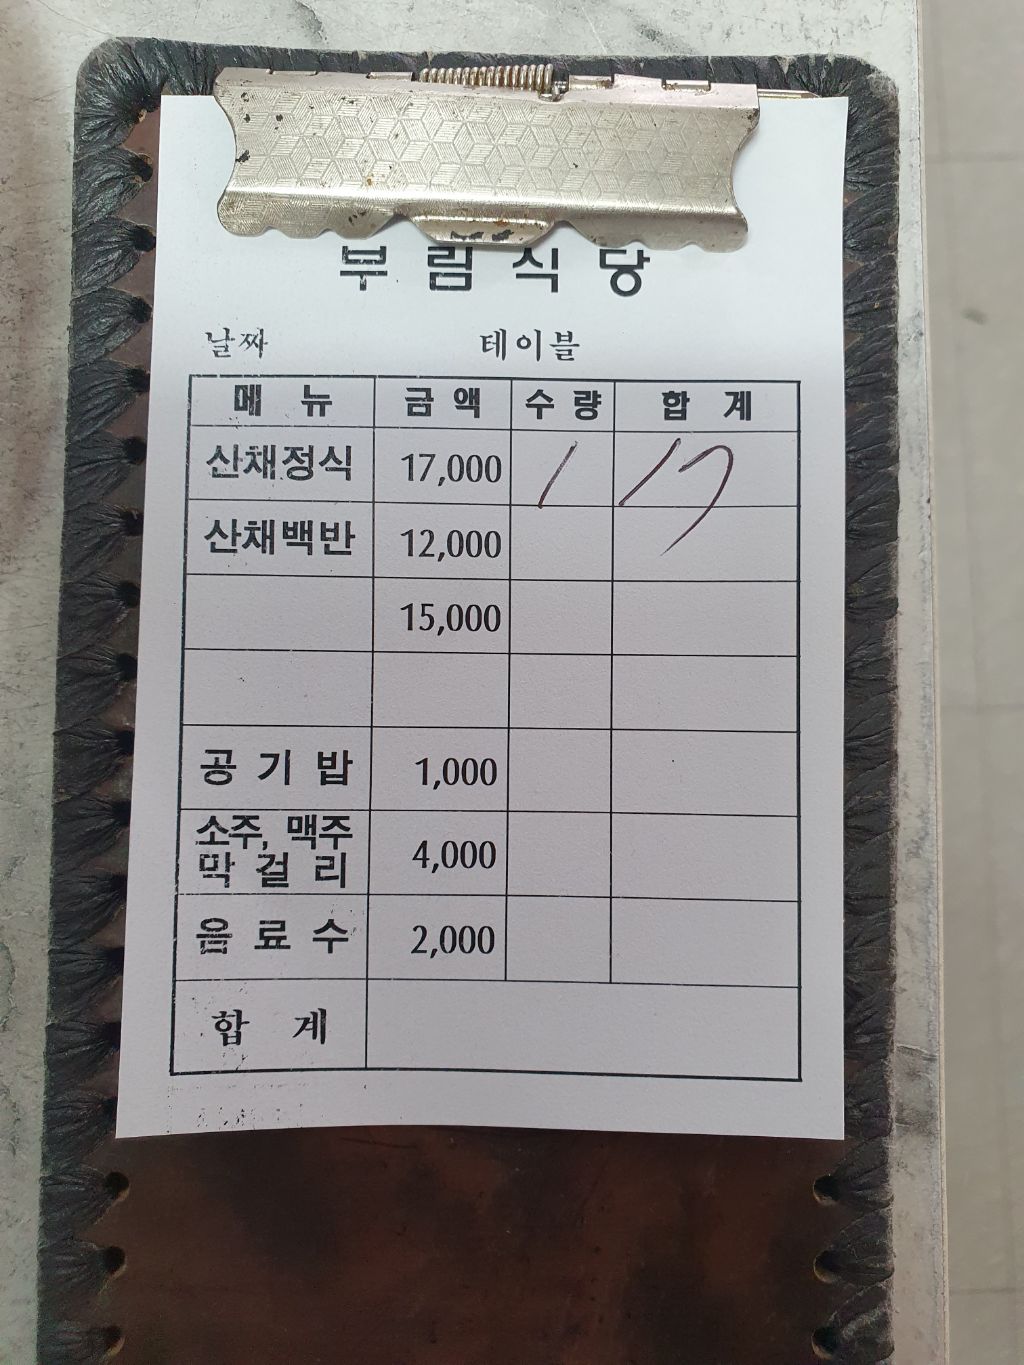 부림식당
날짜 테이블
메뉴 금액 수량 합계
산채정식 17,000 1 17
산채백반 12,000
15,000
공기밥 1,000
소주, 맥주
막걸리 4,000
음료수 2,000
합계